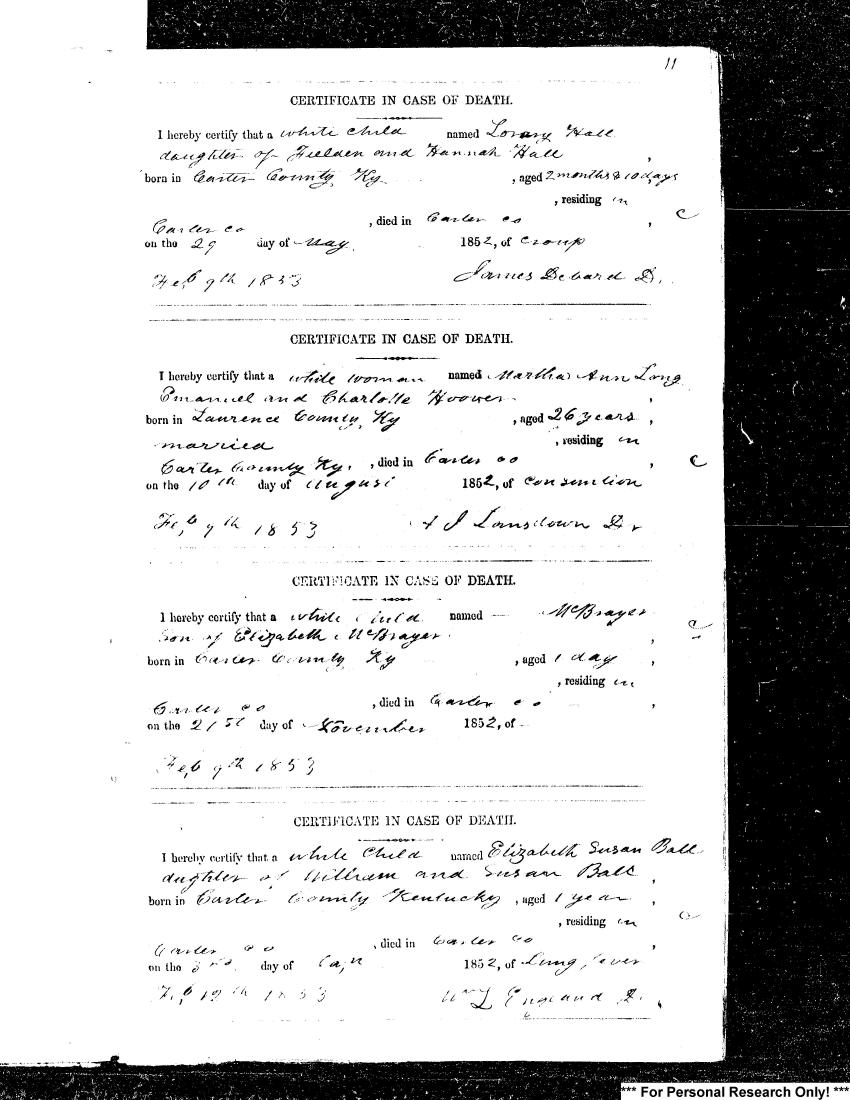 11
CERTIFICATE IN CASE OF DEATH.
I hereby certify that a white child named Lorany Hall
daughter of Fielden and Hannah Hall ,
born in Carter County, Ky , aged 2 months & 10 days
, residing in
Carter co , died in Carter co , C
on the 29 day of May 1852, of croup
Feb 9th 1853 James Debard D.
CERTIFICATE IN CASE OF DEATH.
I hereby certify that a white woman named Martha Ann Long
Emanuel and Charlotte Hoover ,
born in Laurence County, Ky , aged 26 years ,
married , residing in
Carter County Ky. , died in Carter co , C
on the 10th day of August 1852, of consumtion
Feb 9th 1853 A J Lansdown Dr
CERTIFICATE IN CASE OF DEATH.
I hereby certify that a white child named — McBrayer
Son of Elizabeth McBrayer , C
born in Carter County Ky , aged 1 day ,
, residing in
Carter co , died in Carter co ,
on the 21st day of November 1852, of
Feb 9th 1853
CERTIFICATE IN CASE OF DEATH.
I hereby certify that a white Child named Elizabeth Susan Ball
daughter of William and Susan Ball ,
born in Carter County Kentucky , aged 1 year ,
, residing in C
Carter co , died in Carter co ,
on the 3rd day of 1852, of Lung fever
Feb 19th 1853 Wm L England D.
*** For Personal Research Only! ***